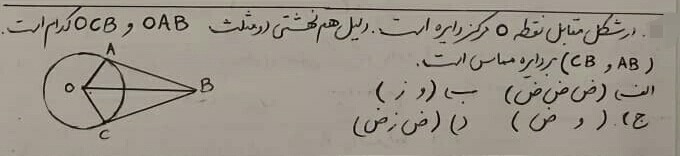 . در شکل مقابل نقطه O مرکز دایره است. دلیل هم نهشتی دو مثلث OAB و OCB کدام است.
(AB و CB) بر دایره مماس است.
الف) (ض ض ض) ب) (و ز)
ج) (و ض) د) (ض ز ض)
A
O
B
C